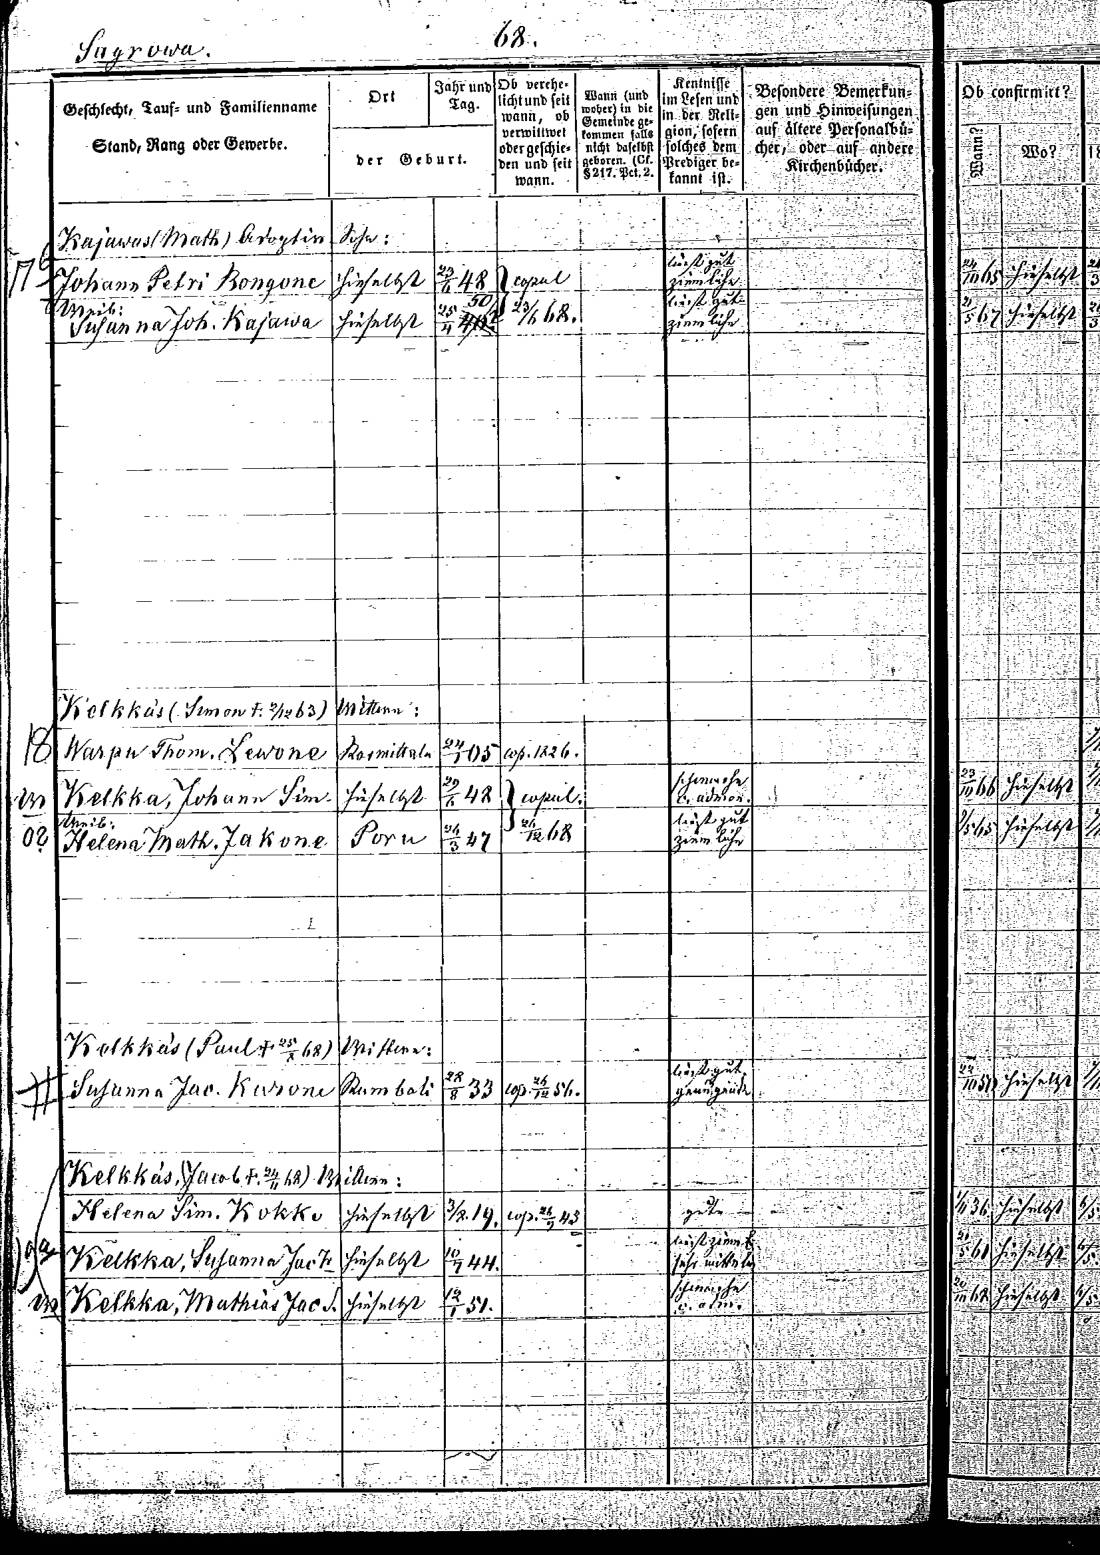 Sagrowa.
68.
Geschlecht, Tauf- und Familienname
Stand, Rang oder Gewerbe.
Ort
Jahr und
Tag.
der Geburt.
Ob verehe-
licht und seit
wann, ob
verwittwet
oder geschie-
den und seit
wann.
Wann (und
woher) in die
Gemeinde ge-
kommen falls
nicht daselbst
geboren. (Cf.
§ 217. Pct. 2.
Kentnisse
im Lesen und
in der Reli-
gion, sofern
solches dem
Prediger be-
kannt ist.
Besondere Bemerkun-
gen und Hinweisungen
auf ältere Personalbü-
cher, oder auf andere
Kirchenbücher.
Ob confirmirt?
Wann?
Wo?
18
Kajawas (Math) Adoptiv Sohn:
Johann Petri Rongone hieselbst 23/6 48 copul liest gut ziemliche 24/10 65 hieselbst
Weib:
Susanna Joh. Kajawa hieselbst 25/4 50 23/1 68. liest gut ziemliche 21/5 67 hieselbst
Kelkkäs (Simon †. 2/12 63) Wittwe:
18 Warpu Thom. Lewone Rasmittala 24/1 05 cop. 1826.
Kelkka, Johann Sim. hieselbst 29/6 48 copul. schwache c. admon. 23/10 66 hieselbst
Weib:
Helena Math. Jakone Poru 26/3 47 26/12 68 liest gut ziemliche 9/5 65 hieselbst
Kelkkäs (Paul † 25/2 68) Wittwe:
Susanna Jac. Kurone Rumboli 28/8 33 cop. 26/12 56. liest gut genügende hieselbst
Kelkkäs, (Jacob †. 24/11 68) Wittwe:
Helena Sim. Kokko hieselbst 3/2 19. cop. 26/9 43 gute 1/11 36 hieselbst
Kelkka, Susanna Jac t. hieselbst 10/7 44. 21/5 61 hieselbst
Kelkka, Mathias Jac S. hieselbst 12/1 51. schwache c. adm. 20/10 68 hieselbst